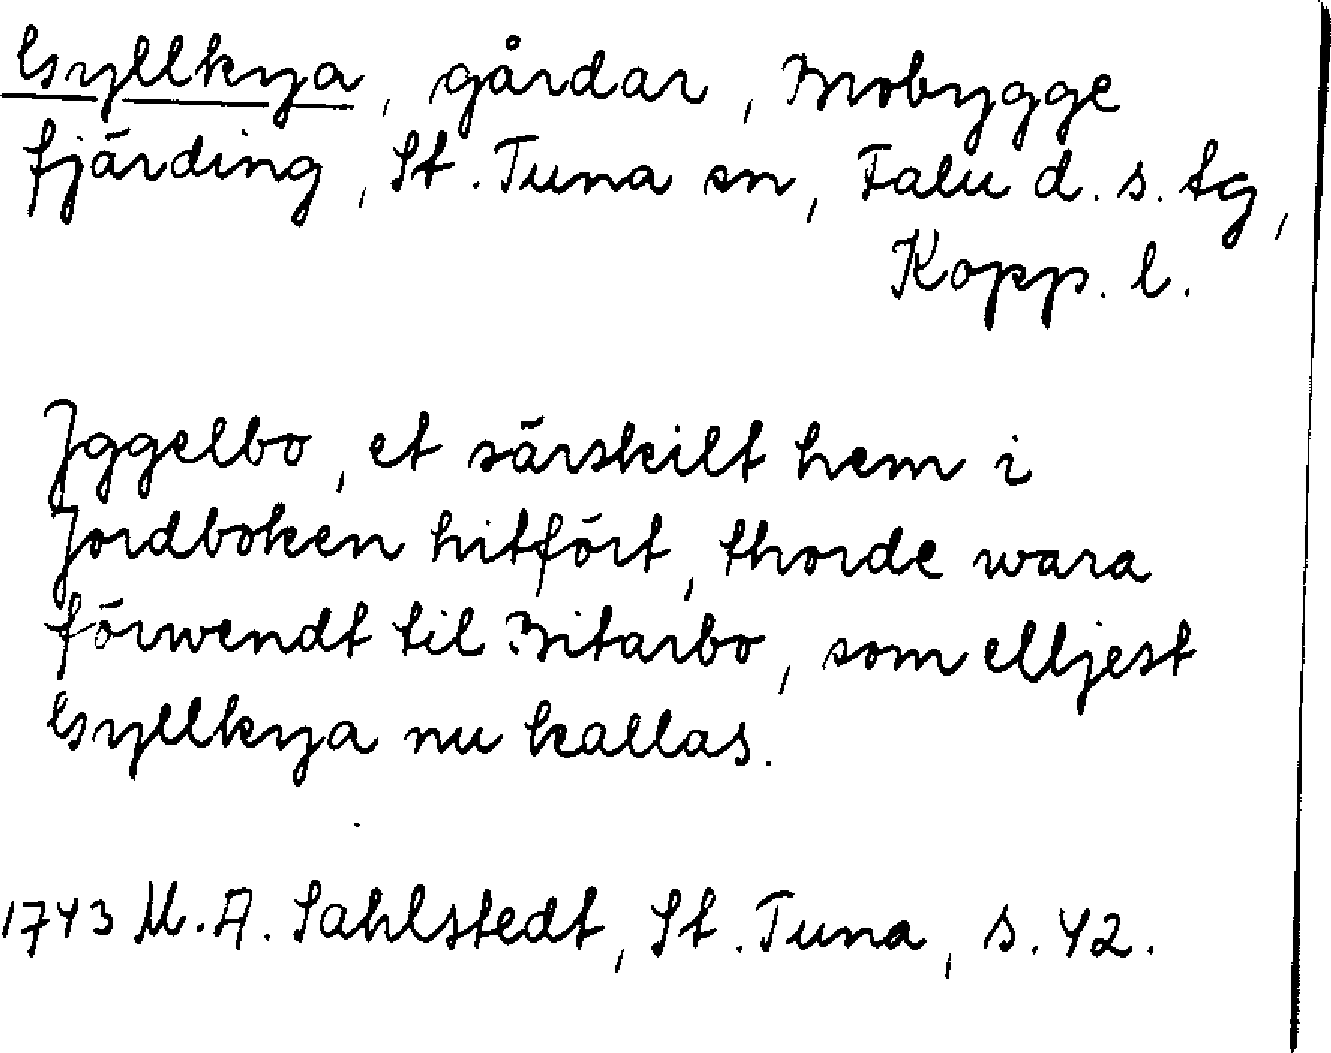 Gyllkya, gårdar, Brobygge
fjärding, St. Tuna sn, Falu d. s. tg,
Kopp. l.
Jggelbo, et särskilt hem i
Jordboken hitfört, thorde wara
förwendt til Bitarbo, som elljest
Gyllkya nu kallas.
1743 M. A. Sahlstedt, St. Tuna, s. 42.